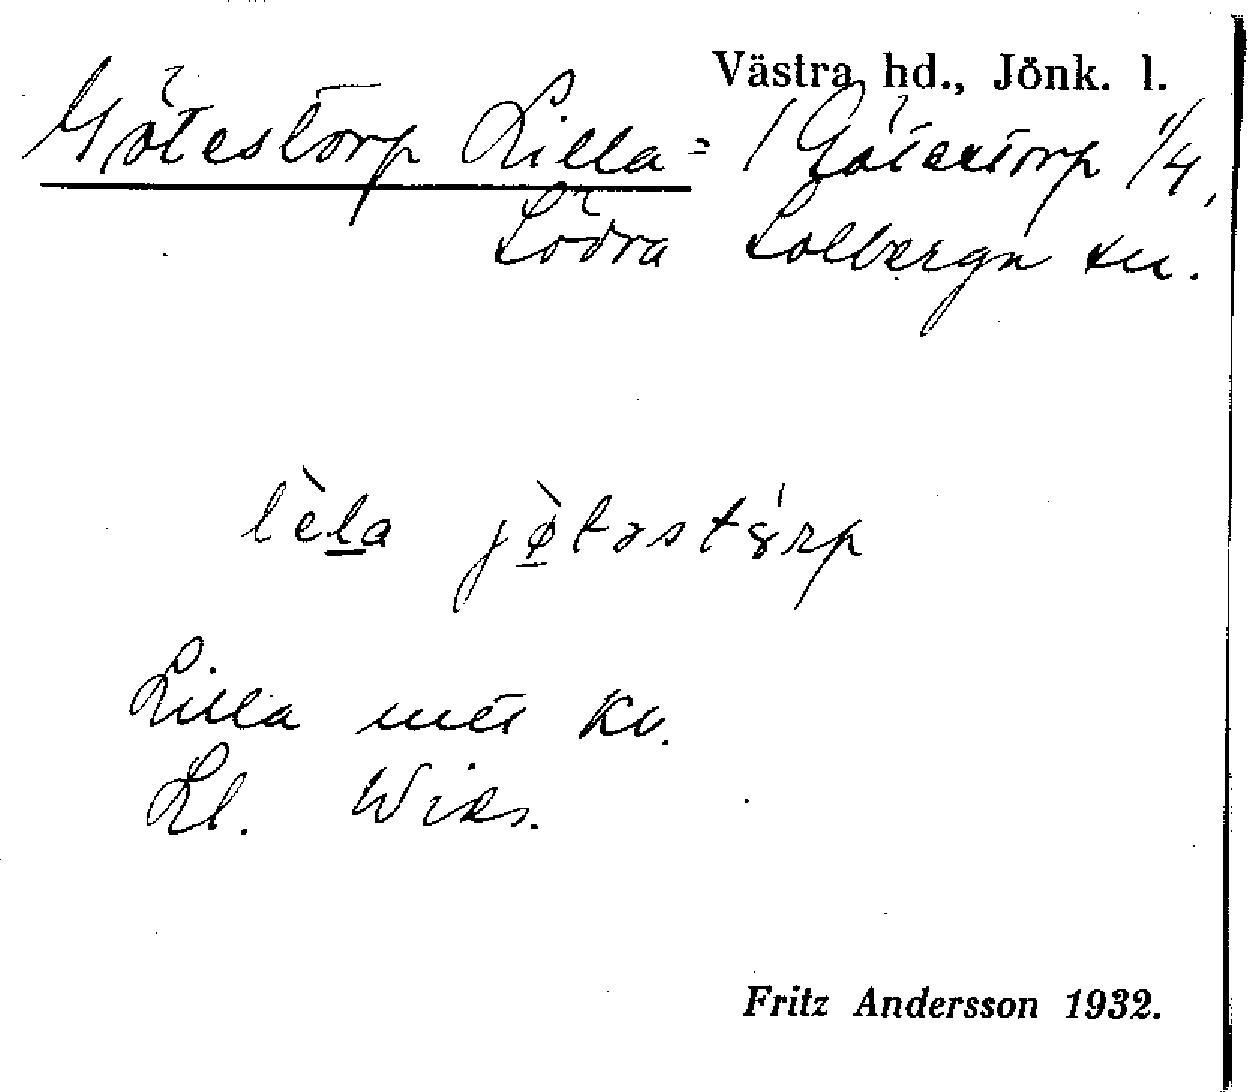 Västra hd., Jönk. l.
Götestorp Lilla = / Götestorp 1/4,
Södra Solberga sn.
lèla jø̀təstórp
Lilla utt. kv.
Ll. Wies.
Fritz Andersson 1932.